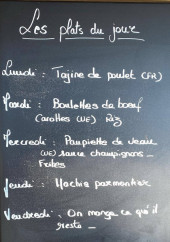 Les plats du jour
Lundi : Tajine de poulet (FR)
Mardi : Boulettes de boeuf
Carottes (UE) Riz
Mercredi : Paupiette de veau
(UE) sauce champignons _
Frites
Jeudi : Hachis parmentier
Vendredi : On mange ce qu'il
reste _